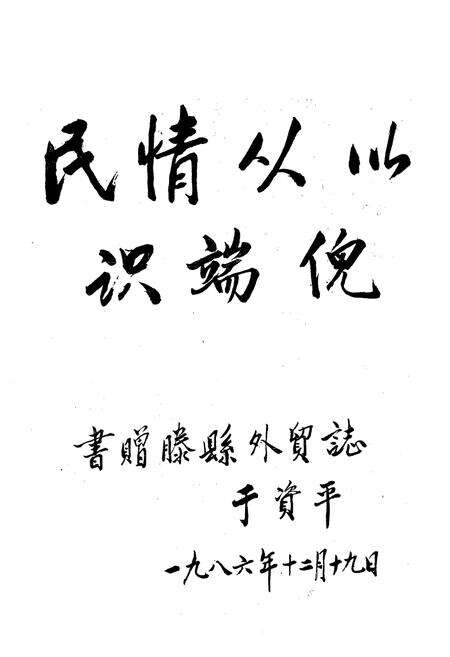 民情从以
识端倪
書贈滕縣外貿誌
于資平
一九八六年十二月十九日